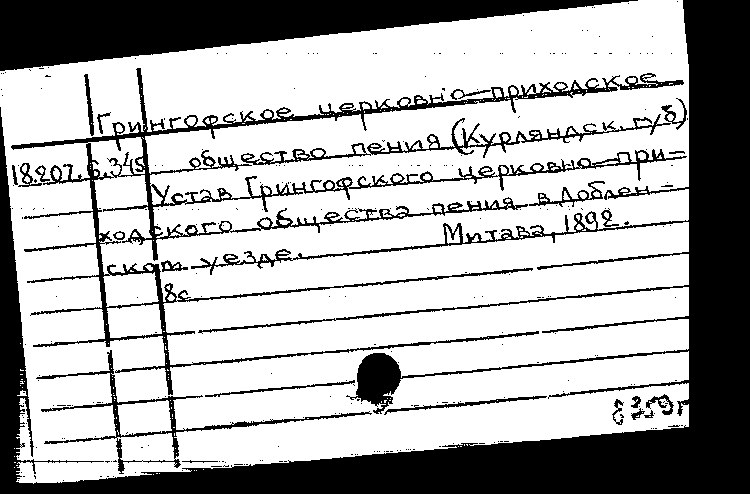 Грингофское церковно-приходское
18.207.6.345 общество пения (Курляндск. губ)
Устав Грингофского церковно-при-
ходского общества пения в Доблен-
ском уезде. Митава, 1892.
8с